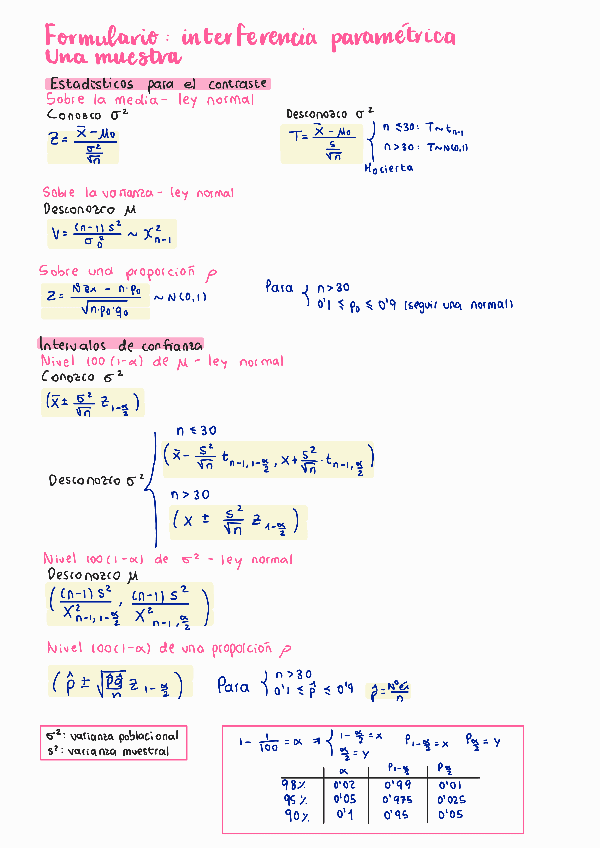 Formulario: interferencia paramétrica
Una muestra
Estadísticos para el contraste
Sobre la media - ley normal
Conosco σ²
Z = (x̄ - μ₀) / (σ²/√n)
Desconozco σ²
T = (x̄ - μ₀) / (s/√n) { n ≤ 30: T ~ tₙ₋₁
n > 30: T ~ N(0,1)
H₀ cierta
Sobre la varianza - ley normal
Desconozco μ
V = (n-1) s² / σ₀² ~ X²ₙ₋₁
Sobre una proporción p
Z = (Nºéx - n·p₀) / √(n·p₀·q₀) ~ N(0,1)
Para { n > 30
0'1 ≤ p₀ ≤ 0'9 (seguir una normal)
Intervalos de confianza
Nivel 100(1-α) de μ - ley normal
Conozco σ²
(x̄ ± σ²/√n Z_{1-α/2})
Desconozco σ²
n ≤ 30
(x̄ - s²/√n t_{n-1, 1-α/2}, x + s²/√n · t_{n-1, α/2})
n > 30
(x ± s²/√n Z_{1-α/2})
Nivel 100(1-α) de σ² - ley normal
Desconozco μ
((n-1) s² / X²_{n-1, 1-α/2}, (n-1) s² / X²_{n-1, α/2})
Nivel 100(1-α) de una proporción p
(p̂ ± √(p̂q̂/n) Z_{1-α/2})
Para { n > 30
0'1 ≤ p̂ ≤ 0'9
p̂ = Nºéx / n
σ²: varianza poblacional
s²: varianza muestral
1 - 1/100 = α ⇒ { 1 - α/2 = x
α/2 = y
P_{1-α/2} = x P_{α/2} = y
α P_{1-α/2} P_{α/2}
98% 0'02 0'99 0'01
95% 0'05 0'975 0'025
90% 0'1 0'95 0'05